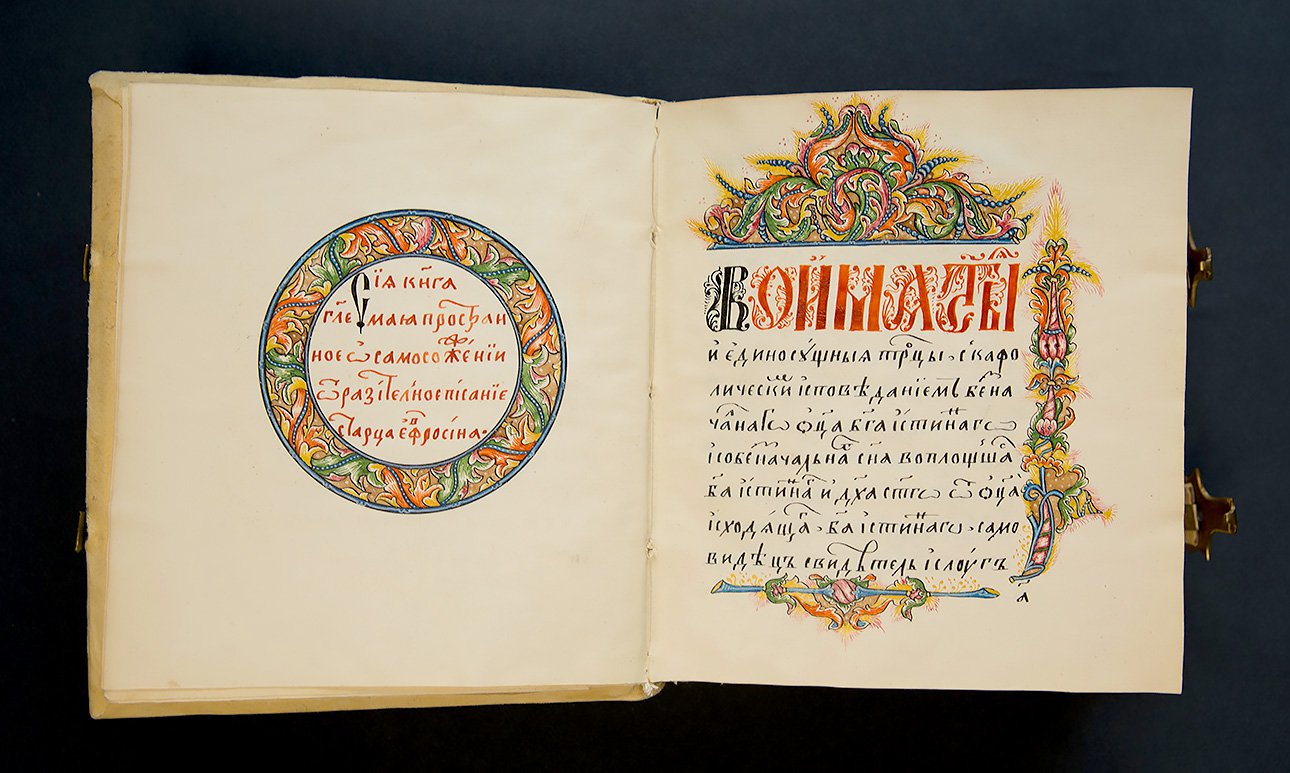 Сїѧ кни́га
гл҃емаѧ простран
ное ѡ самосожженїи
ѿразителное писанїе
старца еѵфросина.
Во и́мѧ ст҃ыѧ
и є҆диносу́щныѧ трⷪ҇цы. с кафо
лически и҆сповѣданїемъ безна
чалнагѡ ѻ҆ц҃а бг҃а и҆стиннагѡ
і҆ собезначална сн҃а воплощша
бг҃а и҆стинна и дх҃а ст҃гѡ ѿ ѻ҆ц҃а
и҆сходѧща. бг҃а и҆стиннагѡ. само
видѣцъ свидѣтель і҆ слоугъ
а҃